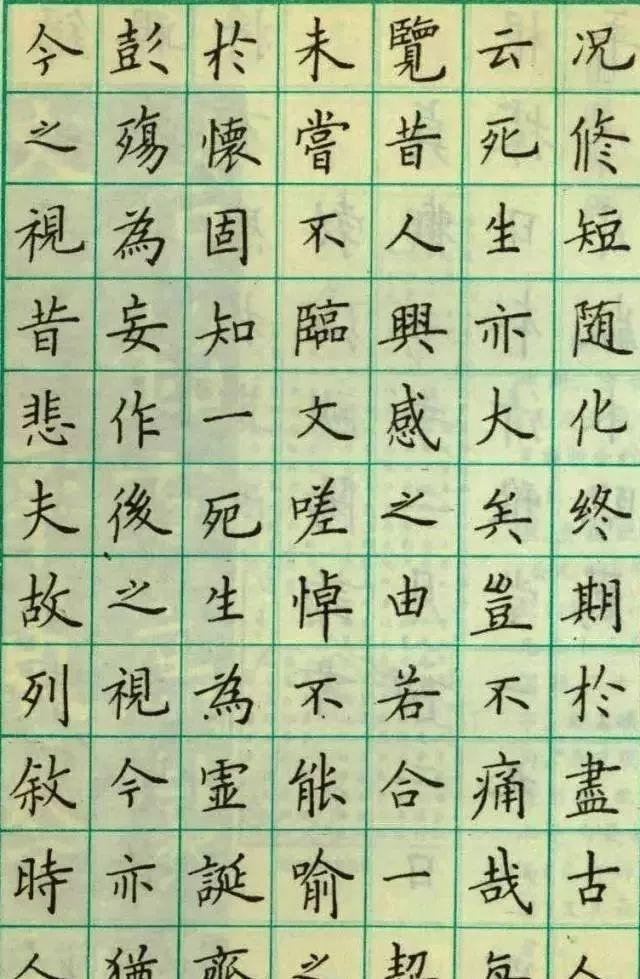 况修短随化终期於盡古人
云死生亦大矣豈不痛哉每
覽昔人興感之由若合一契
未嘗不臨文嗟悼不能喻之
於懷固知一死生為虚誕齊
彭殤為妄作後之視今亦猶
今之視昔悲夫故列敘時人